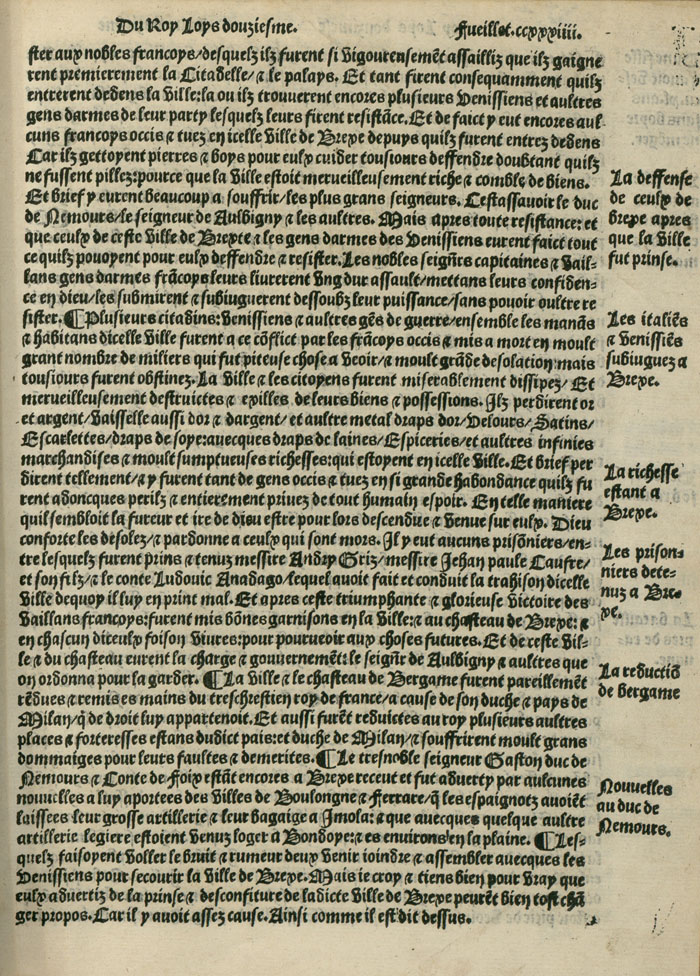 Du Roy Loys douziesme. Fueillet. ccxxxiiii.
ster aux nobles francoys/desquelz ilz furent si vigoureusemēt assailliz que ilz gaigne
rent premierement la Citadelle/⁊ le palays. Et tant firent consequamment quilz
entrerent dedens la ville: la ou ilz trouuerent encores plusieurs Venissiens et aultres
gens darmes de leur party lesquelz leurs firent resistāce. Et de faict y eut encores aul
cuns francoys occis ⁊ tuez en icelle ville de Brexe depuys quilz furent entrez dedens
Car ilz gettoyent pierres ⁊ boys pour eulx cuider tousiours deffendre doubtant quilz
ne fussent pillez: pource que la ville estoit merueilleusement riche ⁊ comble de biens.
Et brief y eurent beaucoup a souffrir/les plus grans seigneurs. Cestassauoir le duc
de Nemours/le seigneur de Aulbigny ⁊ les aultres. Mais apres toute resistance: et
que ceulx de ceste ville de Brexe ⁊ les gens darmes des Venissiens eurent faict tout
ce quilz pouoyent pour eulx deffendre ⁊ resister. Les nobles seignrs capitaines ⁊ vail-
lans gens darmes frācoys leurs liurerent vng dur assault/mettans leurs confiden-
ce en dieu/les submirent ⁊ subiuguerent dessoubz leur puissance/sans pouoir oultre re
sister. ¶Plusieurs citadins: Venissiens ⁊ aultres gēs de guerre/ensemble les manās
⁊ habitans dicelle ville furent a ce cōflict par les frācoys occis ⁊ mis a mort en moult
grant nombre de miliers qui fut piteuse chose a veoir/⁊ moult grāde desolation: mais
tousiours furent obstinez. La ville ⁊ les citoyens furent miserablement dissipez/ Et
merueilleusement destruictes ⁊ expilles de leurs biens ⁊ possessions. Ilz perdirent or
et argent/vaisselle aussi dor ⁊ dargent/et aultre metal draps dor/velours/Satins/
Escarlettes/draps de soye: auecques draps de laines/Espiceries/et aultres infinies
marchandises ⁊ moult sumptueuses richesses: qui estoyent en icelle ville. Et brief per
dirent tellement/⁊ y furent tant de gens occis ⁊ tuez en si grande habondance quilz fu
rent adoncques perilz ⁊ entierement priuez de tout humain espoir. En telle maniere
quil sembloit la fureur et ire de dieu estre pour lors descendue ⁊ venue sur eulx. Dieu
conforte les desolez/⁊ pardonne a ceulx qui sont mors. Il y eut aucuns prisōniers/en-
tre lesquelz furent prins ⁊ tenuz messire Andry Griz/messire Jehan paule Caufre/
et son filz/⁊ le conte Ludouic Anadago/lequel auoit fait et conduit la trahison dicelle
ville dequoy il luy en print mal. Et apres ceste triumphante ⁊ glorieuse victoire des
vaillans francoys: furent mis bōnes garnisons en la ville: ⁊ au chasteau de Brexe: ⁊
en chascun diceulx foison viures: pour pourueoir aux choses futures. Et de ceste vil-
le ⁊ du chasteau eurent la charge ⁊ gouuernemēt: le seignr de Aulbigny ⁊ aultres que
on ordonna pour la garder. ¶La ville ⁊ le chasteau de Bergame furent pareillemēt
rēdues ⁊ remises es mains du treschrestien roy de france/a cause de son duche ⁊ pays de
Milan/q̄ de droit luy appartenoit. Et aussi furēt reductes au roy plusieurs aultres
places ⁊ forteresses estans dudict pais: et duche de Milan/⁊ souffrirent moult grans
dommaiges pour leurs faultes ⁊ demerites. ¶Le tresnoble seigneur Gaston duc de
Nemours ⁊ Conte de Foix estāt encores a Brexe receut et fut aduerty par aulcunes
nouuelles a luy aportees des villes de Boulongne ⁊ Ferrare/q̄ les espaignolz auoiēt
laissees leur grosse artillerie ⁊ leur bagaige a Imola: ⁊ que auecques quelque aultre
artillerie legiere estoient venuz loger a Bondoye: ⁊ es environs en la plaine. ¶Les-
quelz faisoyent voller le bruit ⁊ rumeur deux venir ioindre ⁊ assembler auecques les
Venissiens pour secourir la ville de Brexe. Mais ie croy ⁊ tiens bien pour vray que
eulx aduertiz de la prinse ⁊ desconfiture de ladicte ville de Brexe peurēt bien tost chā
ger propos. Car il y auoit assez cause. Ainsi comme il est dit dessus.
La deffense
de ceulx de
brexe apres
que la ville
fut prinse.
Les italiēs
⁊ Venissiēs
subiuguez a
Brexe.
La richesse
estant a
Brexe.
Les prison-
niers dete-
nuz a Bre-
xe.
La reductiō
de bergame
Nouuelles
au duc de
Nemours.